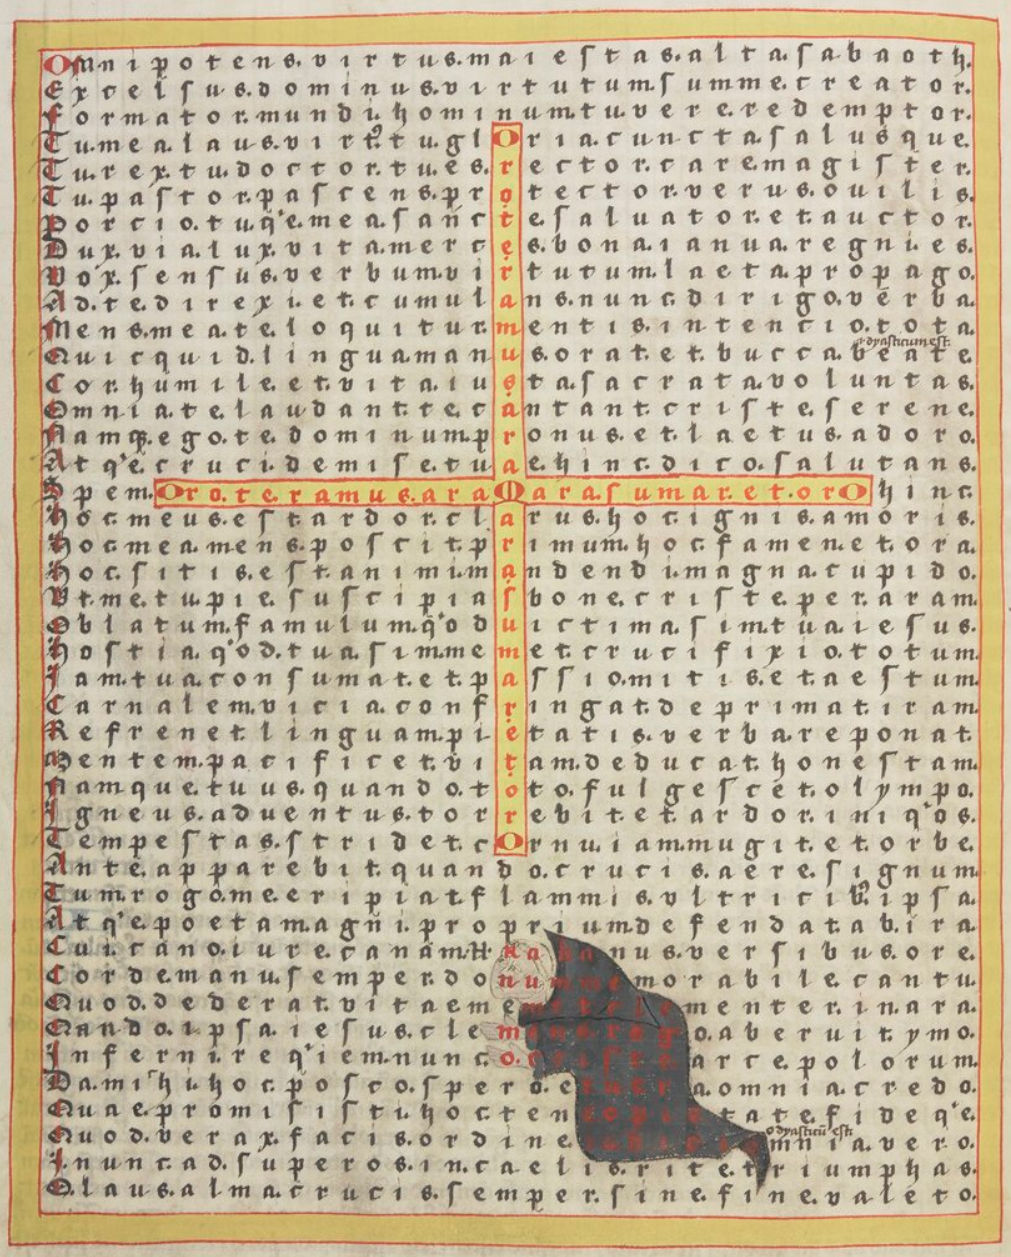 Omnipotens.virtus.maiestas.alta.sabaoth.
Excelsus.dominus.virtutum.summe.creator.
formator.mundi.hominum.tu.vere.redemptor.
Tu.mea.laus.virtꝰ.tu.gloria.cuncta.salusque.
Tu.rex.tu.doctor.tu.es.rector.care.magister.
Tu.pastor.pascens.protector.verus.ouilis.
Porcio.tu.q'e.mea.sancte.saluator.et.auctor.
Dux.via.lux.vita.merces.bona.ianua.regni.es.
Vox.sensus.verbum.virtutum.laeta.propago.
Ad.te.direxi.et.cumulans.nunc.dirigo.verba.
Mens.mea.te.loquitur.mentis.intencio.tota.
Quicquid.lingua.manus.orat.et.bucca.beate.
Cor.humile.et.vita.iusta.sacrata.voluntas.
Omnia.te.laudant.te.cantant.criste.serene.
Namq;.ego.te.dominum.pronus.et.laetus.adoro.
Atq'e.cruci.demise.tuae.hinc.dico.salutans.
Spem.Oro.te.ramus.araMara.sumar.et.orO hinc.
Hoc.meus.est.ardor.clarus.hoc.ignis.amoris.
Hoc.mea.mens.poscit.primum.hoc.famen.et.ora.
Hoc.sitis.est.animi.mandendi.magna.cupido.
Vt.me.tu.pie.suscipias.bone.criste.per.aram.
Oblatum.famulum.q'od.uictima.sim.tua.iesus.
Hostia.q'od.tua.sim.memet.crucifixio.totum.
Jam.tua.consumat.et.passio.mitiset.aestum.
Carnalem.vicia.confringat.deprimat.iram.
Refrenet.linguam.pietatis.verba.reponat.
Mentem.pacificet.vitam.deducat.honestam.
Namque.tuus.quando.toto.fulgescet.olympo.
Igneus.aduentus.torrebit.et.ardor.iniq'os.
Tempestas.stridet.cornu.iam.mugit.et.orbe.
Ante.apparebit.quando.crucis.aere.signum.
Tum.rogo.me.eripiat.flammis.vltricibꝰ.ipsa.
Atq'e.poeta.magni.proprium.defendat.ab.ira.
Cui.cano.iure.canam.rabanus.versibus.ore.
Corde.manu.semper.donum.memorabile.cantu.
Quod.dederat.vitae.memet.clementer.in.ara.
Mando.ipsa.iesus.clemens.rogo.ab.eruit.ymo.
Inferni.req'iem.nunc.o.criste.arce.polorum.
Da.mihi.hoc.posco.spero.et.uere.a.omnia.credo.
Quae.promisisti.hoc.teneo.pietate.fideq'e.
Quod.verax.facis.ordine.iudicio.omnia.vero.
Inunc.ad.superos.in.caelis.rite.triumphas.
O.laus.alma.crucis.semper.sine.fine.valeto.